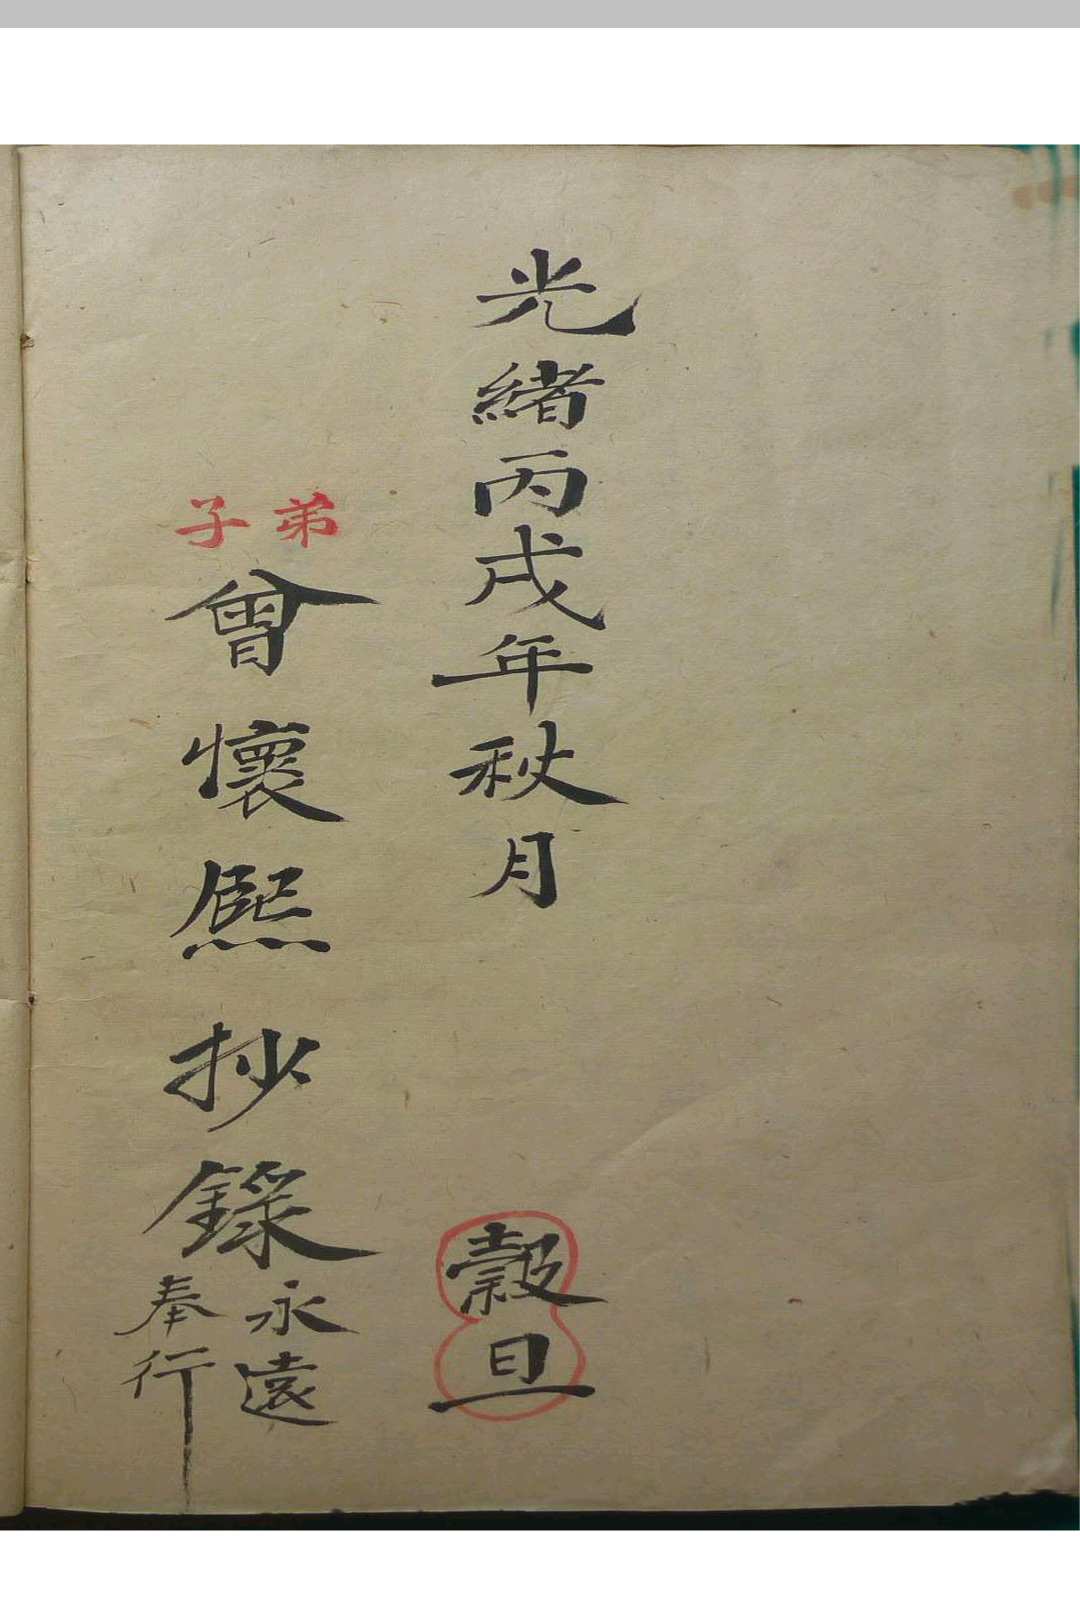 光緒丙戌年秋月
穀旦
弟子
曾懷熙抄錄
永遠
奉行